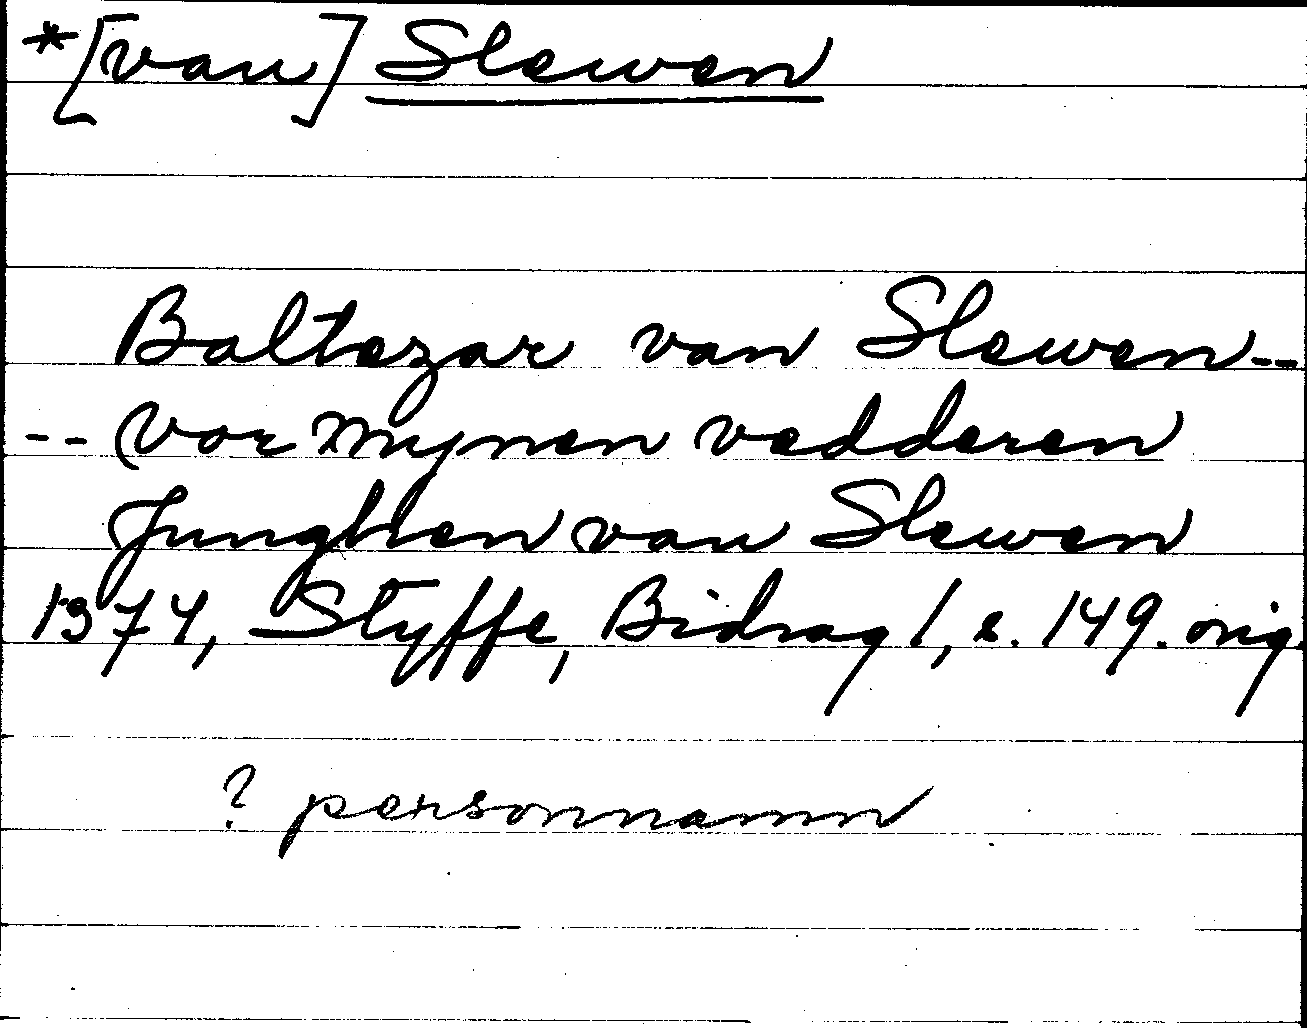 *[van] Slewen
Baltezar van Slewen --
-- vor mynen vedderen
Junghen van Slewen
1374, Styffe, Bidrag 1, s. 149. orig.
? personnamn